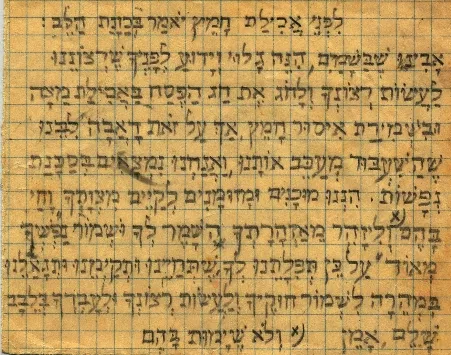 לִפְנֵי אֲכִילַת חָמֵץ יֹאמַר בְּכַוָּנַת הַלֵּב:
אָבִינוּ שֶׁבַּשָּׁמַיִם, הִנֵּה גָלוּי וְיָדוּעַ לְפָנֶיךָ שֶׁרְצוֹנֵנוּ
לַעֲשׂוֹת רְצוֹנְךָ וְלָחֹג אֶת חַג הַפֶּסַח בַּאֲכִילַת מַצָּה
וּבִשְׁמִירַת אִיסוּר חָמֵץ, אַךְ עַל זֹאת דָּאֲבָה לִבֵּנוּ
שֶׁהַשִּׁעְבּוּד מְעַכֵּב אוֹתָנוּ, וַאֲנַחְנוּ נִמְצָאִים בְּסַכָּנַת
נְפָשׁוֹת. הִנְנוּ מוּכָנִים וּמְזוּמָּנִים לְקַיֵּם מִצְוָתְךָ וָחַי
בָּהֶם א) וְלִיזָּהֵר מֵאַזְהָרָתְךָ הִשָּׁמֶר לְךָ וּשְׁמוֹר נַפְשְׁךָ
מְאוֹד, עַל כֵּן תְּפִלָּתֵנוּ לְךָ שֶׁתְּחַיֵּינוּ וּתְקַיְּמֵנוּ וְתִגְאָלֵנוּ
בִּמְהֵרָה לִשְׁמוֹר חוּקֶּיךָ וְלַעֲשׂוֹת רְצוֹנְךָ וּלְעָבְדְּךָ בְּלֵבָב
שָׁלֵם, אָמֵן א) וְלֹא שֶׁיָּמוּת בָּהֶם